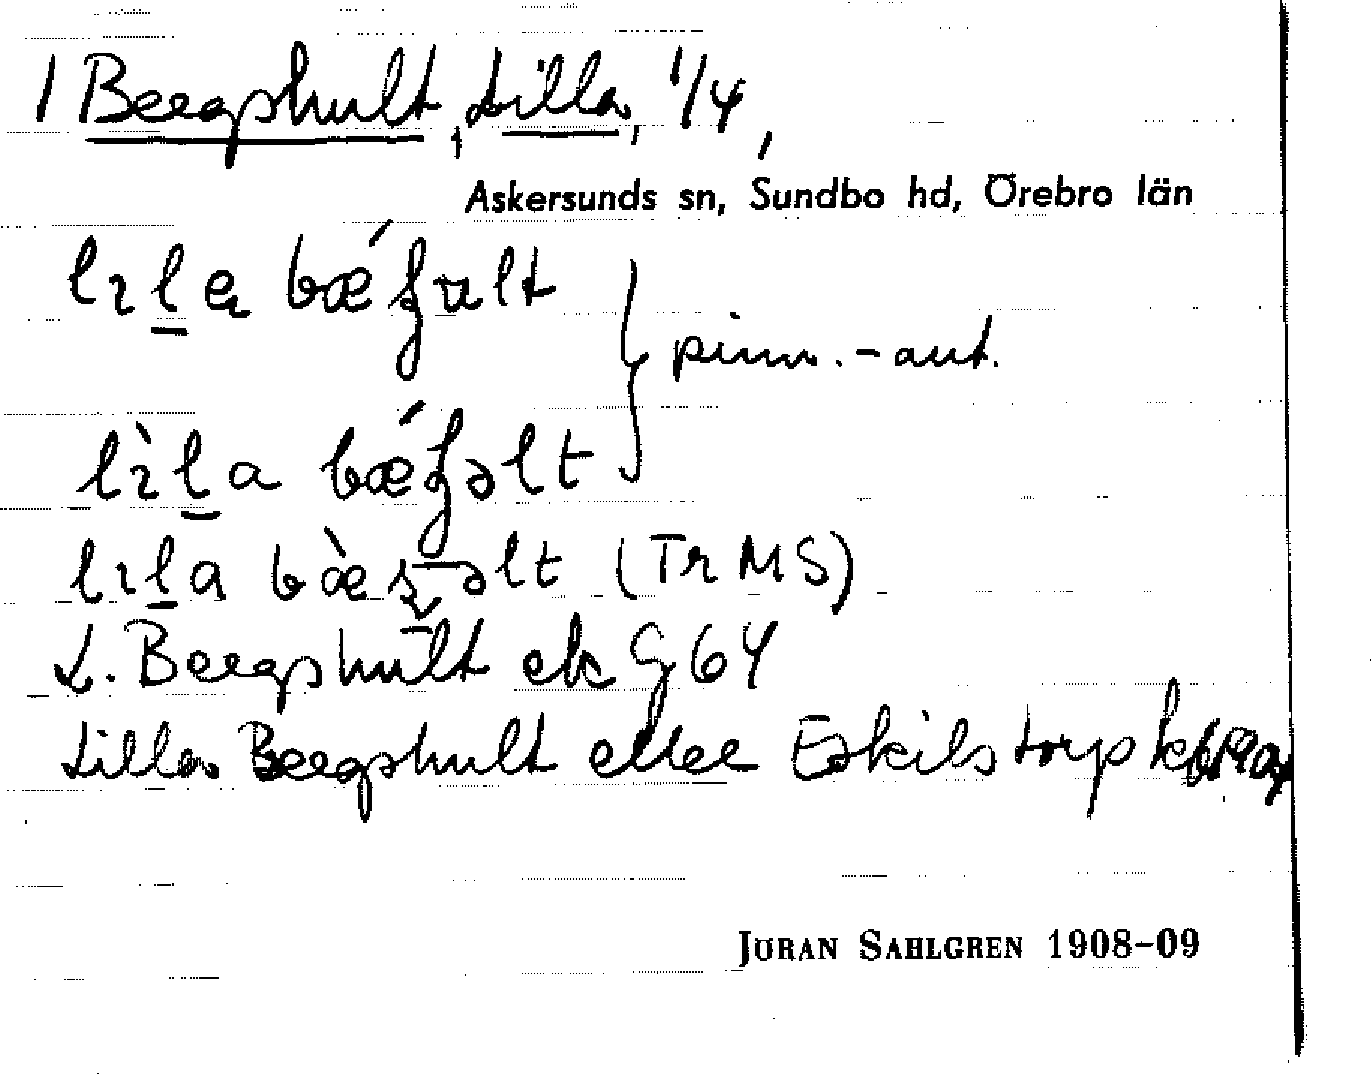 1 Bergshult, Lilla, 1/4,
Askersunds sn, Sundbo hd, Örebro län
lɪla bǽʂult
pinn.-ant.
lɪ̀la bǽʂəlt
lɪla bæ̀ʂəlt (Tr MS)
L. Bergshult ek G 64
Lilla Bergshult eller Eskilstorp
JÖRAN SAHLGREN 1908-09